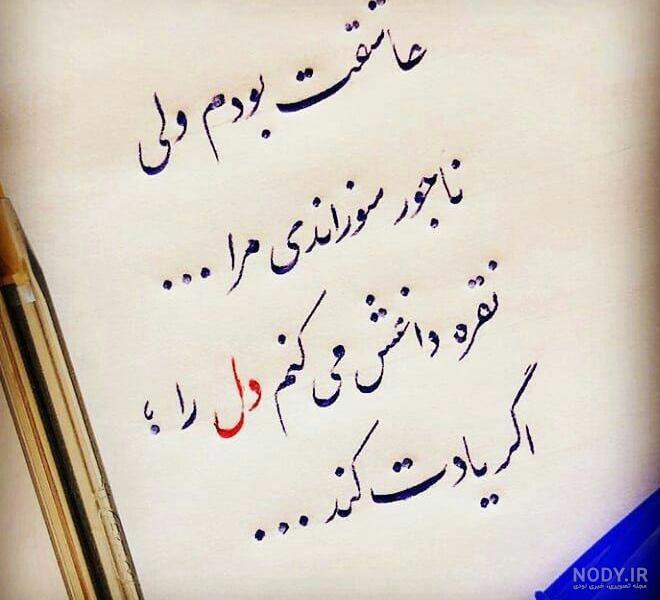 عاشقت بودم ولی
ناجور سوزاندی مرا ...
نقره داغش می کنم دل را ؛
اگر یادت کند ...
NODY.IR
مجله تصویری، خبری نودی